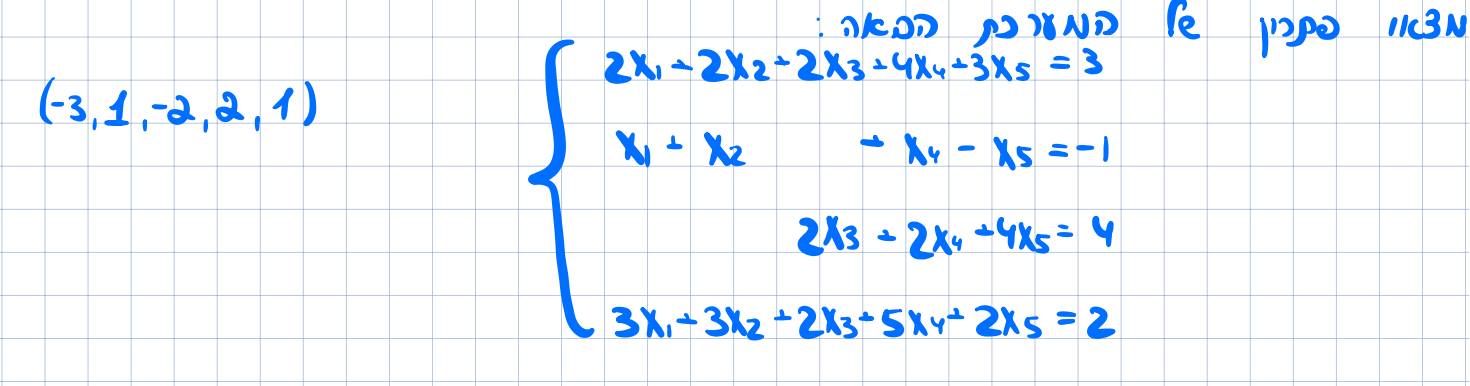 מצאו פתרון של המערכת הבאה:
2x₁ + 2x₂ + 2x₃ + 4x₄ + 3x₅ = 3
(-3, 1, -2, 2, 1)
x₁ + x₂ + x₄ - x₅ = -1
2x₃ + 2x₄ + 4x₅ = 4
3x₁ + 3x₂ + 2x₃ + 5x₄ + 2x₅ = 2